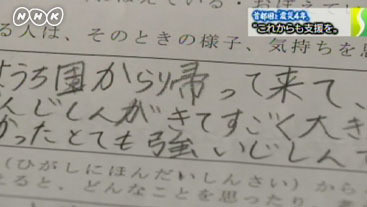 NHK
首都圏 震災4年
"これからも支援を。
る人は、そのときの様子、気持ちを思
ようち園からり帰って来て、
んじしんがきてすごく大き
かったとても強いじしんで
(ひがしにほんだいしんさい)から
ると、どんなことを思ったり